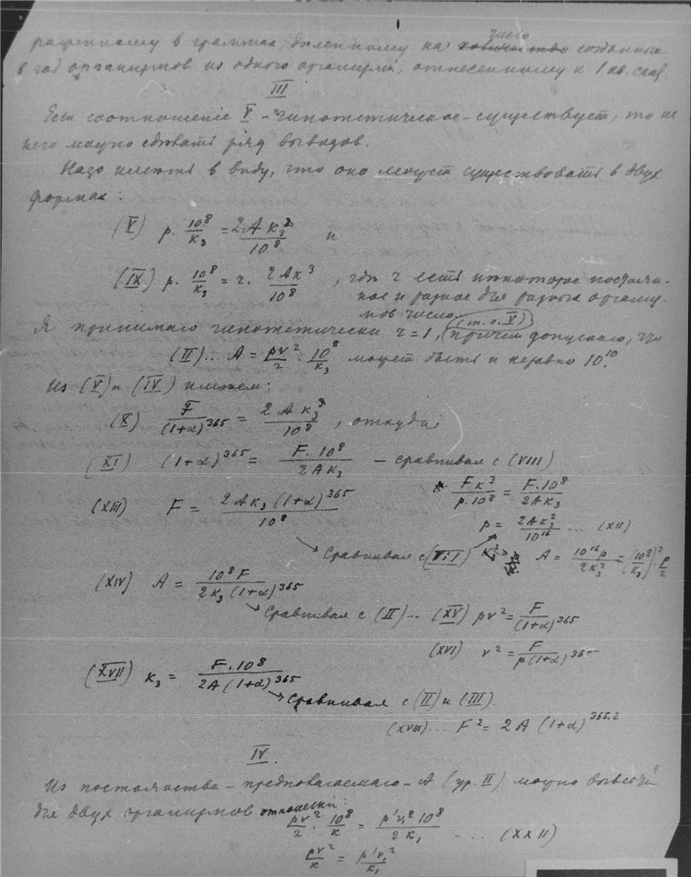 раженному в граммах, деленному на число созданных
в год организмов из одного организма, отнесенному к 1 кв.
III
Если соотношение V – гипотетическое – существует, то из
него можно сделать ряд выводов.
Надо иметь в виду, что оно может существовать в двух
формах:
(V) p. 10⁸/к₃ = 2Aк₃/10⁸ и
(IX) p. 10⁸/к₃ = r. 2Aк₃/10⁸, где r есть некоторое постоян-
ное и разное для разных организ-
мов число
Я принимаю гипотетически r = 1, (т.е. V) причем допускаю, что
(II)... A = pv²/2 · 10⁸/к₃ может быть и неравно 10¹⁰.
Из (V) и (IV) имеем:
(X) F/(1+α)³⁶⁵ = 2Aк₃/10⁸, откуда
(XI) (1+α)³⁶⁵ = F.10⁸/2Aк₃ – сравнивая с (VIII)
Fк₃/p.10⁸ = F.10⁸/2Aк₃
(XIII) F = 2Aк₃(1+α)³⁶⁵/10⁸
p = 2Aк₃²/10¹⁶ ... (XII)
Сравнивая с (VIII) A = 10¹⁶p/2к₃² = (10⁸/к₃)² · p/2
(XIV) A = 10⁸F/2к₃(1+α)³⁶⁵
Сравнивая с (II)... (XV) pv² = F/(1+α)³⁶⁵
(XVI) v² = F/p(1+α)³⁶⁵
(XVII) к₃ = F.10⁸/2A(1+α)³⁶⁵
Сравнивая с (II) и (III).
(XVIII)... F² = 2A(1+α)³⁶⁵·²
IV.
Из постоянства – предполагаемаго – A (ур. II) можно вывести
для двух организмов отношения:
pv²/2 · 10⁸/к = p'v₁²10⁸/2к₁ ... (XXII)
pv²/к = p'v₁²/к₁